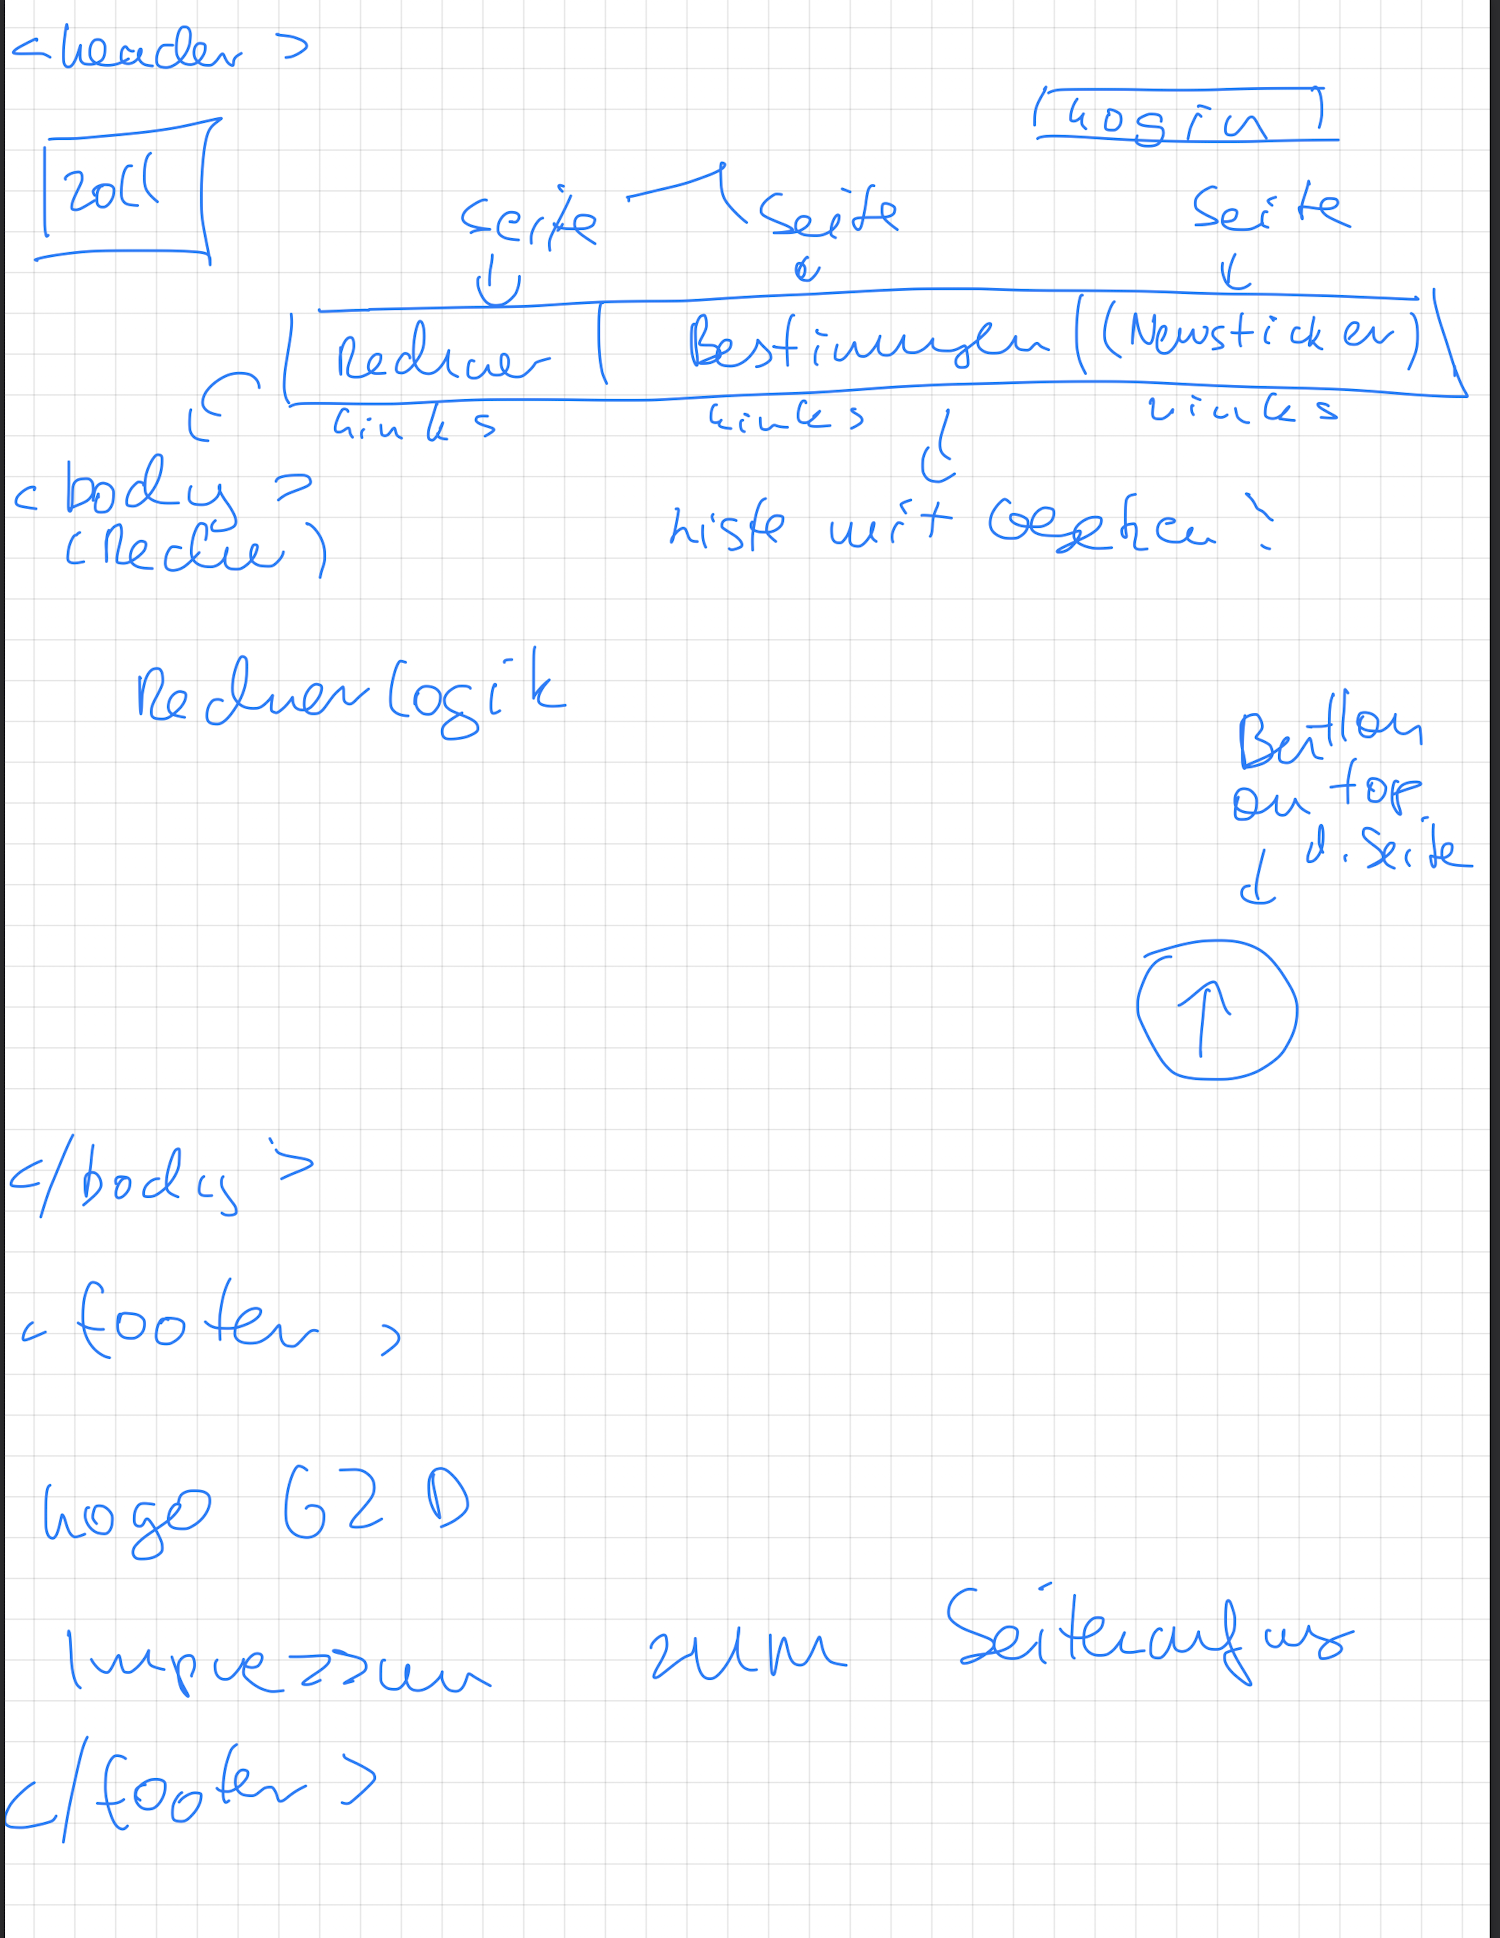 <header>
Login
Zoll
Seite Seite Seite
Rechner Bestimmungen (Newsticker)
Links Links Links
<body>
(Rechner)
Liste mit Gesetzen?
Rechnerlogik
Button
on top
d. Seite
↑
</body>
<footer>
Logo GZD
Impressum zum Seitenanfang
</footer>